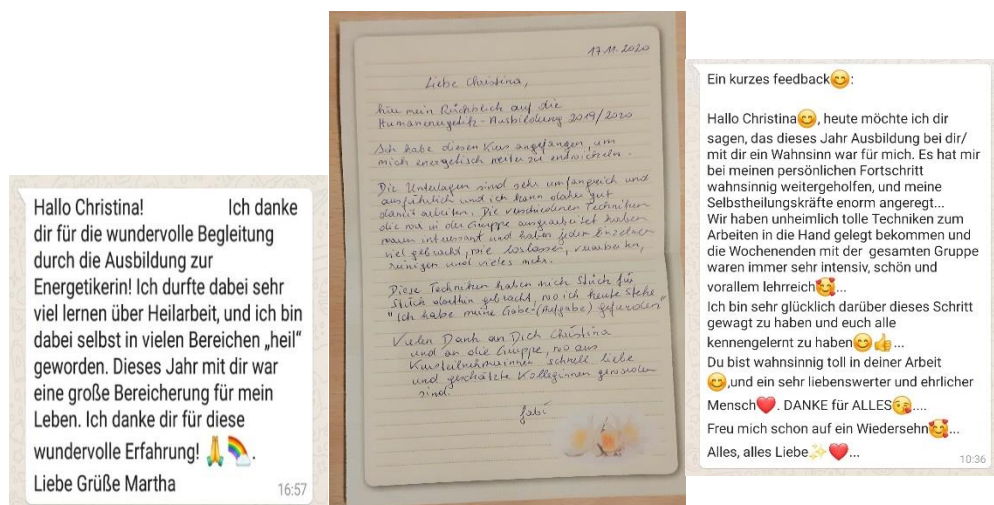 Hallo Christina! Ich danke
dir für die wundervolle Begleitung
durch die Ausbildung zur
Energetikerin! Ich durfte dabei sehr
viel lernen über Heilarbeit, und ich bin
dabei selbst in vielen Bereichen „heil"
geworden. Dieses Jahr mit dir war
eine große Bereicherung für mein
Leben. Ich danke dir für diese
wundervolle Erfahrung! 🙏🌈.
Liebe Grüße Martha
16:57
17.11.2020
Liebe Christina,
hier mein Rückblick auf die
Humanenergetik-Ausbildung 2019/2020
Ich habe diesen Kurs angefangen, um
mich energetisch weiter zu entwickeln.
Die Unterlagen sind sehr umfangreich und
ausführlich und ich kann daher gut
damit arbeiten. Die verschiedenen Techniken
die wir in der Gruppe ausgearbeitet haben
waren interessant und haben jeden Einzelnen
viel gebracht, wie loslassen, verarbeiten,
reinigen und vieles mehr.
Diese Techniken haben mich Stück für
Stück dorthin gebracht, wo ich heute stehe
"Ich habe meine Gabe (Aufgabe) gefunden"
Vielen Dank an Dich Christina
und an die Gruppe, wo aus
Kursteilnehmerinnen schnell liebe
und geschätzte Kolleginnen geworden
sind.
Gabi
Ein kurzes feedback😊:
Hallo Christina😊, heute möchte ich dir
sagen, das dieses Jahr Ausbildung bei dir/
mit dir ein Wahnsinn war für mich. Es hat mir
bei meinen persönlichen Fortschritt
wahnsinnig weitergeholfen, und meine
Selbstheilungskräfte enorm angeregt...
Wir haben unheimlich tolle Techniken zum
Arbeiten in die Hand gelegt bekommen und
die Wochenenden mit der gesamten Gruppe
waren immer sehr intensiv, schön und
vorallem lehrreich🥰...
Ich bin sehr glücklich darüber dieses Schritt
gewagt zu haben und euch alle
kennengelernt zu haben😊👍...
Du bist wahnsinnig toll in deiner Arbeit
😊,und ein sehr liebenswerter und ehrlicher
Mensch❤️. DANKE für ALLES😘....
Freu mich schon auf ein Wiedersehn🥰...
Alles, alles Liebe✨❤️...
10:36